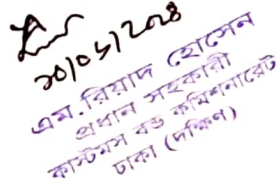 ২০/০৮/২০২৪
এম. রিয়াদ হোসেন
প্রধান সহকারী
কাস্টমস বন্ড কমিশনারেট
ঢাকা (দক্ষিণ)